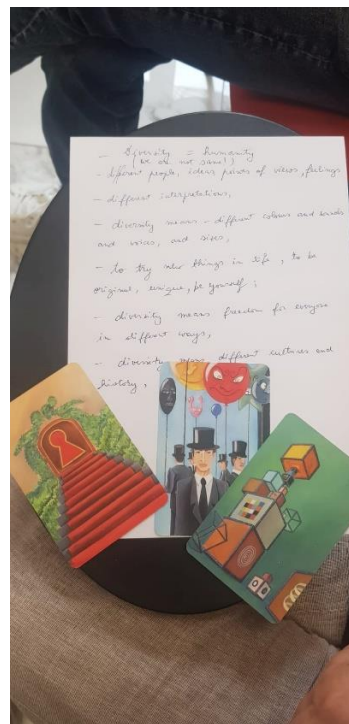 - Diversity = humanity
(we are not same!)
- different people, ideas, points of views, feelings
- different interpretations,
- diversity means - different colours and sounds
and voices, and sizes,
- to try new things in life, to be
original, unique, be yourself;
- diversity means freedom for everyone
in different ways,
- diversity means different cultures and
history,